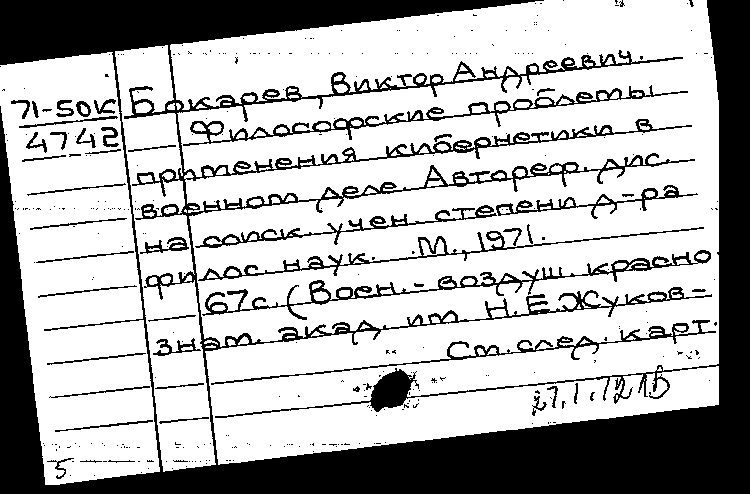 71-50к Бокарев, Виктор Андреевич.
4742 Философские проблемы
применения кибернетики в
военном деле. Автореф. дис.
на соиск. учен. степени д-ра
филос. наук. М., 1971.
67с. (Воен.-воздуш. красно
знам. акад. им. Н.Е.Жуков-
См. след. карт.
27.1.72
5